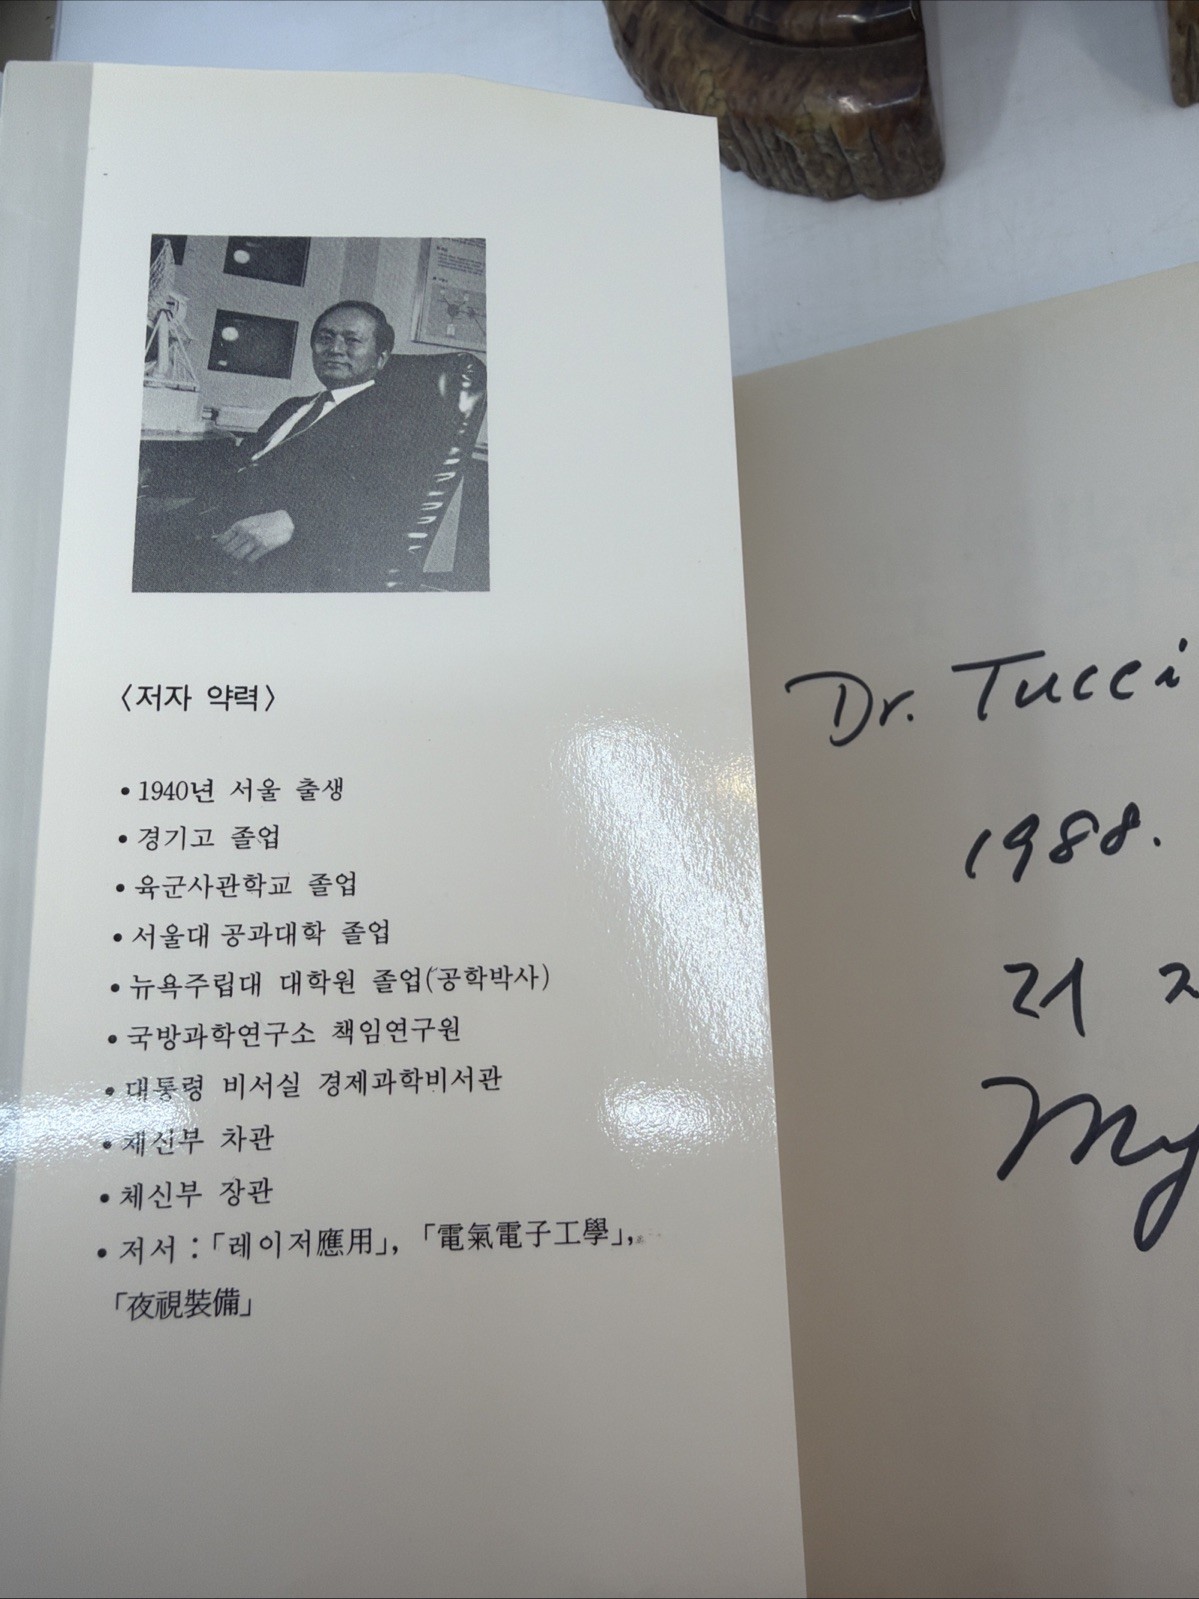 〈저자 약력〉
• 1940년 서울 출생
• 경기고 졸업
• 육군사관학교 졸업
• 서울대 공과대학 졸업
• 뉴욕주립대 대학원 졸업(공학박사)
• 국방과학연구소 책임연구원
• 대통령 비서실 경제과학비서관
• 체신부 차관
• 체신부 장관
• 저서 : 「레이저應用」, 「電氣電子工學」,
「夜視裝備」
Dr. Tucci
1988.
저
My